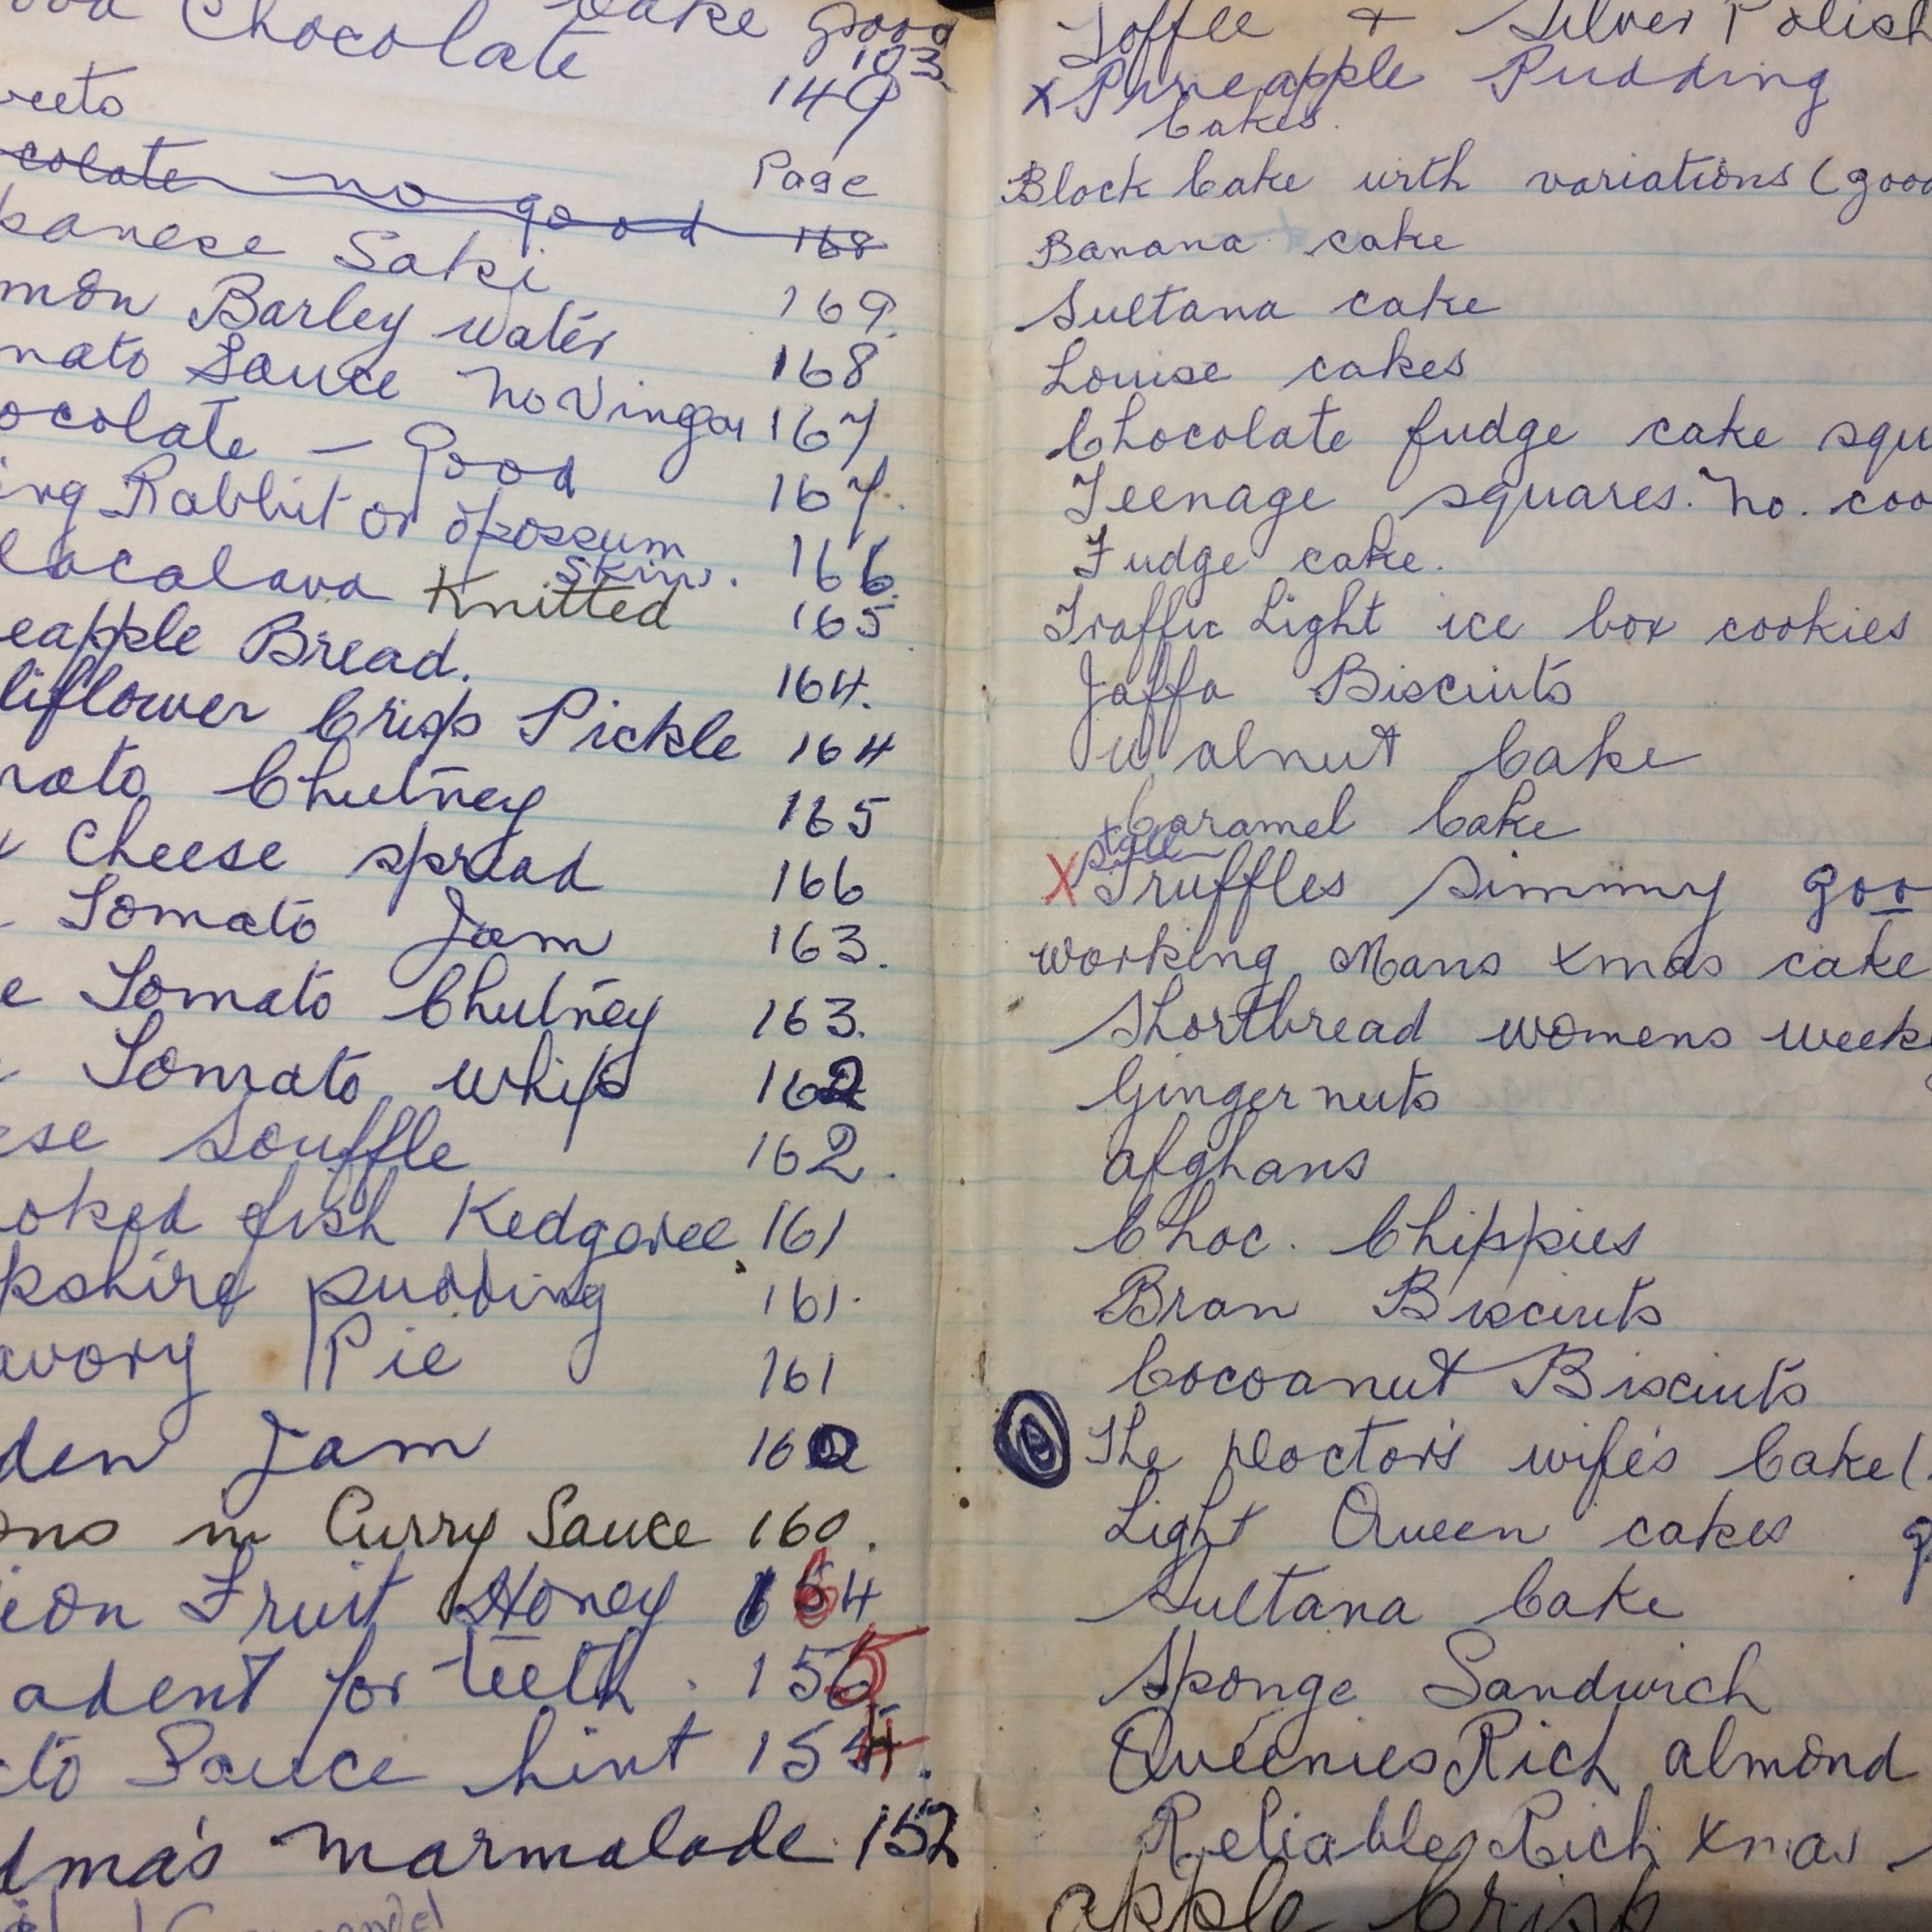 Chocolate cake good 103
149
Page
colate no good 168
panese Saki 169.
mon Barley water 168
mato Sauce No Vingar 167
ocolate - Good 167.
ing Rabbit or opossum skins. 166.
lacalava Knitted 165
eapple Bread. 164.
liflower Crisp Pickle 164
mato Chutney 165
Cheese spread 166
Tomato Jam 163.
e Tomato Chutney 163.
Tomato whip 162
ese Souffle 162.
oked fish Kedgeree 161
kshire pudding 161.
avory Pie 161
den Jam 160
ons in Curry Sauce 160.
ion Fruit Honey 164
adent for teeth. 155
to Sauce hint 154.
dma's marmalade 152
Toffee + Silver Polish
x Pineapple Pudding
Cakes.
Block Cake with variations (good
Banana cake
Sultana cake
Louise cakes
Chocolate fudge cake squ
Teenage squares. No. coo
Fudge cake.
Traffic Light ice box cookies
Jaffa Biscuits
Walnut Cake
Caramel Cake
X Truffles Simmy goo
Working Mans xmas cake
Shortbread womens week
Ginger nuts
afghans
Choc. Chippies
Bran Biscuits
Cocoanut Biscuits
The Doctor's wife's Cake (
Light Queen cakes g
Sultana Cake
Sponge Sandwich
Queenies Rich almond
Reliable Rich xmas
apple Crisp